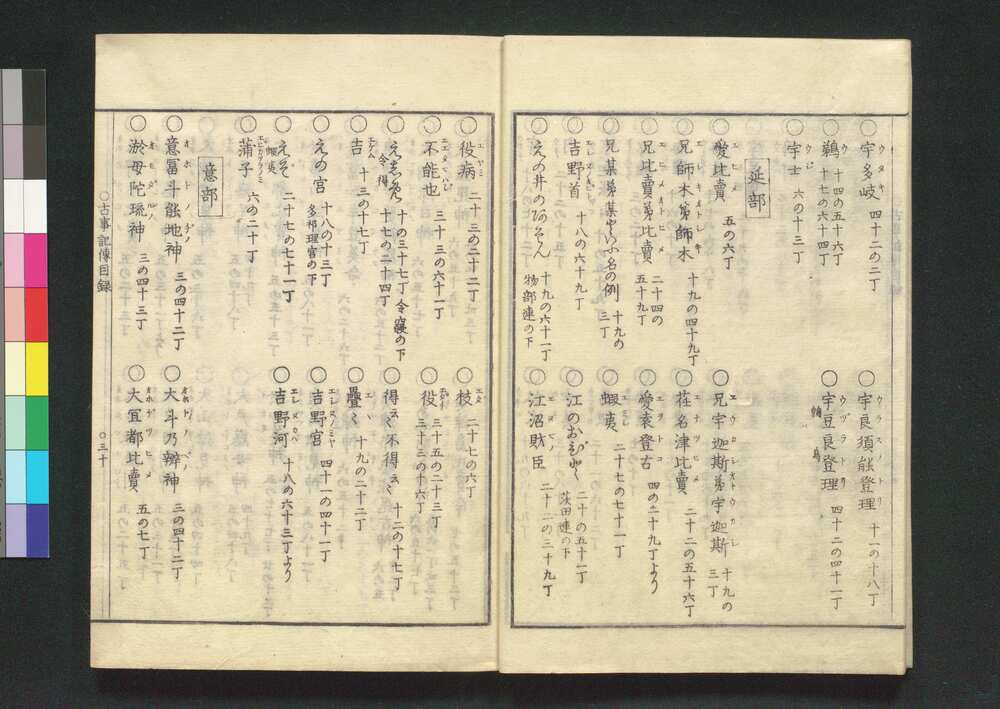 ○宇多岐 四十二の二丁
○宇良須能登理 十一の十八丁
○鵜 十四の五十六丁 十七の六十四丁
○宇豆良登理 四十二の四十一丁
○宇士 六の十三丁
延部
○愛比賣 五の六丁
○兄宇迦斯弟宇迦斯 十九の三丁
○兄師木弟師木 十九の四十九丁
○荏名津比賣 二十二の五十六丁
○兄比賣弟比賣 二十四の五十九丁
○愛袁登古 四の二十九丁より
○兄某弟某といふ名の例 十九の三丁
○蝦夷 二十七の七十一丁
○吉野首 十八の六十九丁
○江のおびと 二十の五十一丁 茨田連の下
○えの井の 十九の六十一丁 物部連の下
○江沼財臣 二十二の三十九丁
○役病 二十三の二十二丁
○枝 二十七の六丁
○不能也 三十三の六十一丁
○役 三十五の二十三丁 三十三の十六丁
令得 十の三十七丁 令寢の下 十七の二十四丁
○得云々不得云々 十二の十七丁
○吉 十三の十七丁
○疊々 十九の二十二丁
○えの宮 十八の十三丁 多祁理宮の下
○吉野宮 四十一の四十一丁
○えぞ 蝦夷 二十七の七十一丁
○吉野河 十八の六十三丁より
○蒲子 六の二十丁
意部
○意富斗能地神 三の四十二丁
○大斗乃辨神 三の四十二丁
○淤母陀琉神 三の四十三丁
○大宜都比賣 五の七丁
○古事記傳目録
○三十